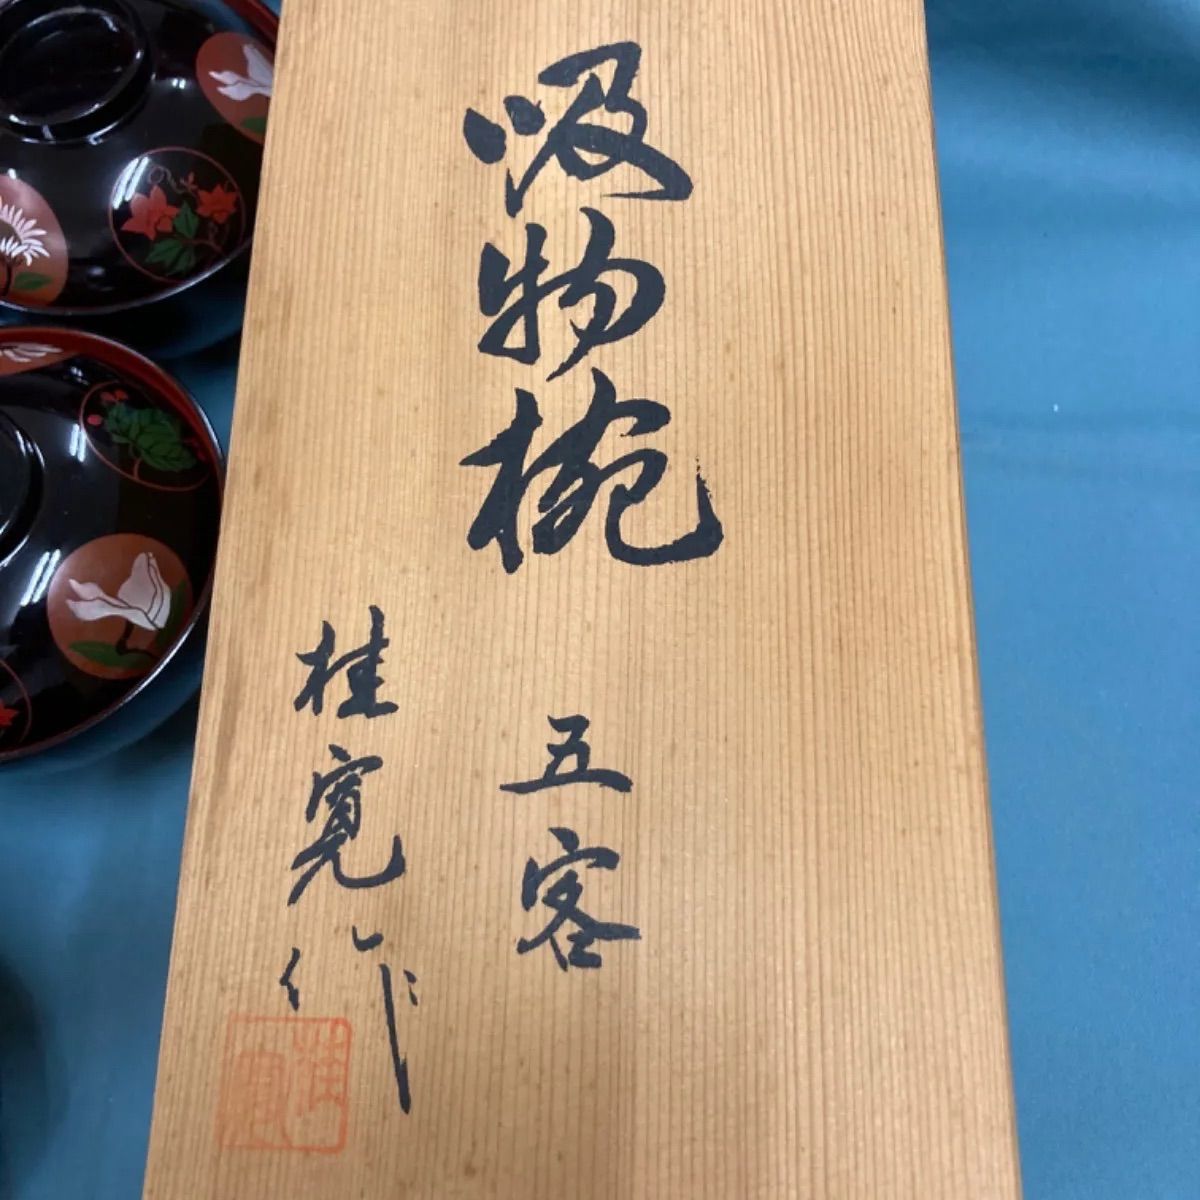 吸物椀
五客
桂寛作